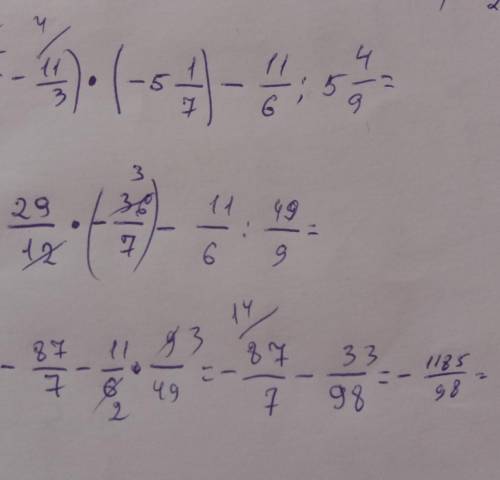 - 11/3) · (-5 1/7) - 11/6 : 5 4/9 =
29/12 · (-36/7) - 11/6 : 49/9 =
- 87/7 - 11/6 · 9/49 = - 87/7 - 33/98 = - 1185/98 =